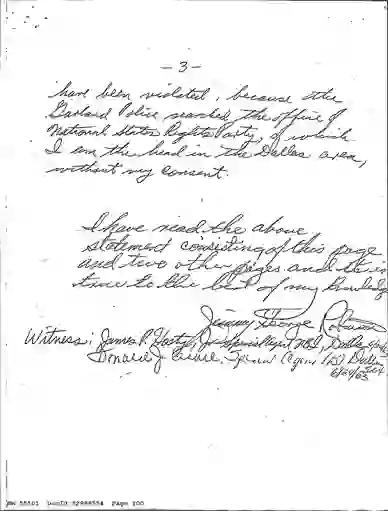 - 3 -
have been violated, because the
Garland Police searched the office of
National States Rights Party, of which
I am the head in the Dallas area,
without my consent.
I have read the above
statement consisting of this page
and two other pages and it is
true to the best of my knowledg
Jimmy George Robinson
Witness: James P. Hosty, Jr. Special Agent FBI, Dallas
Donald J. Special Agent FBI Dallas
6/24/63 Tex
Page 100